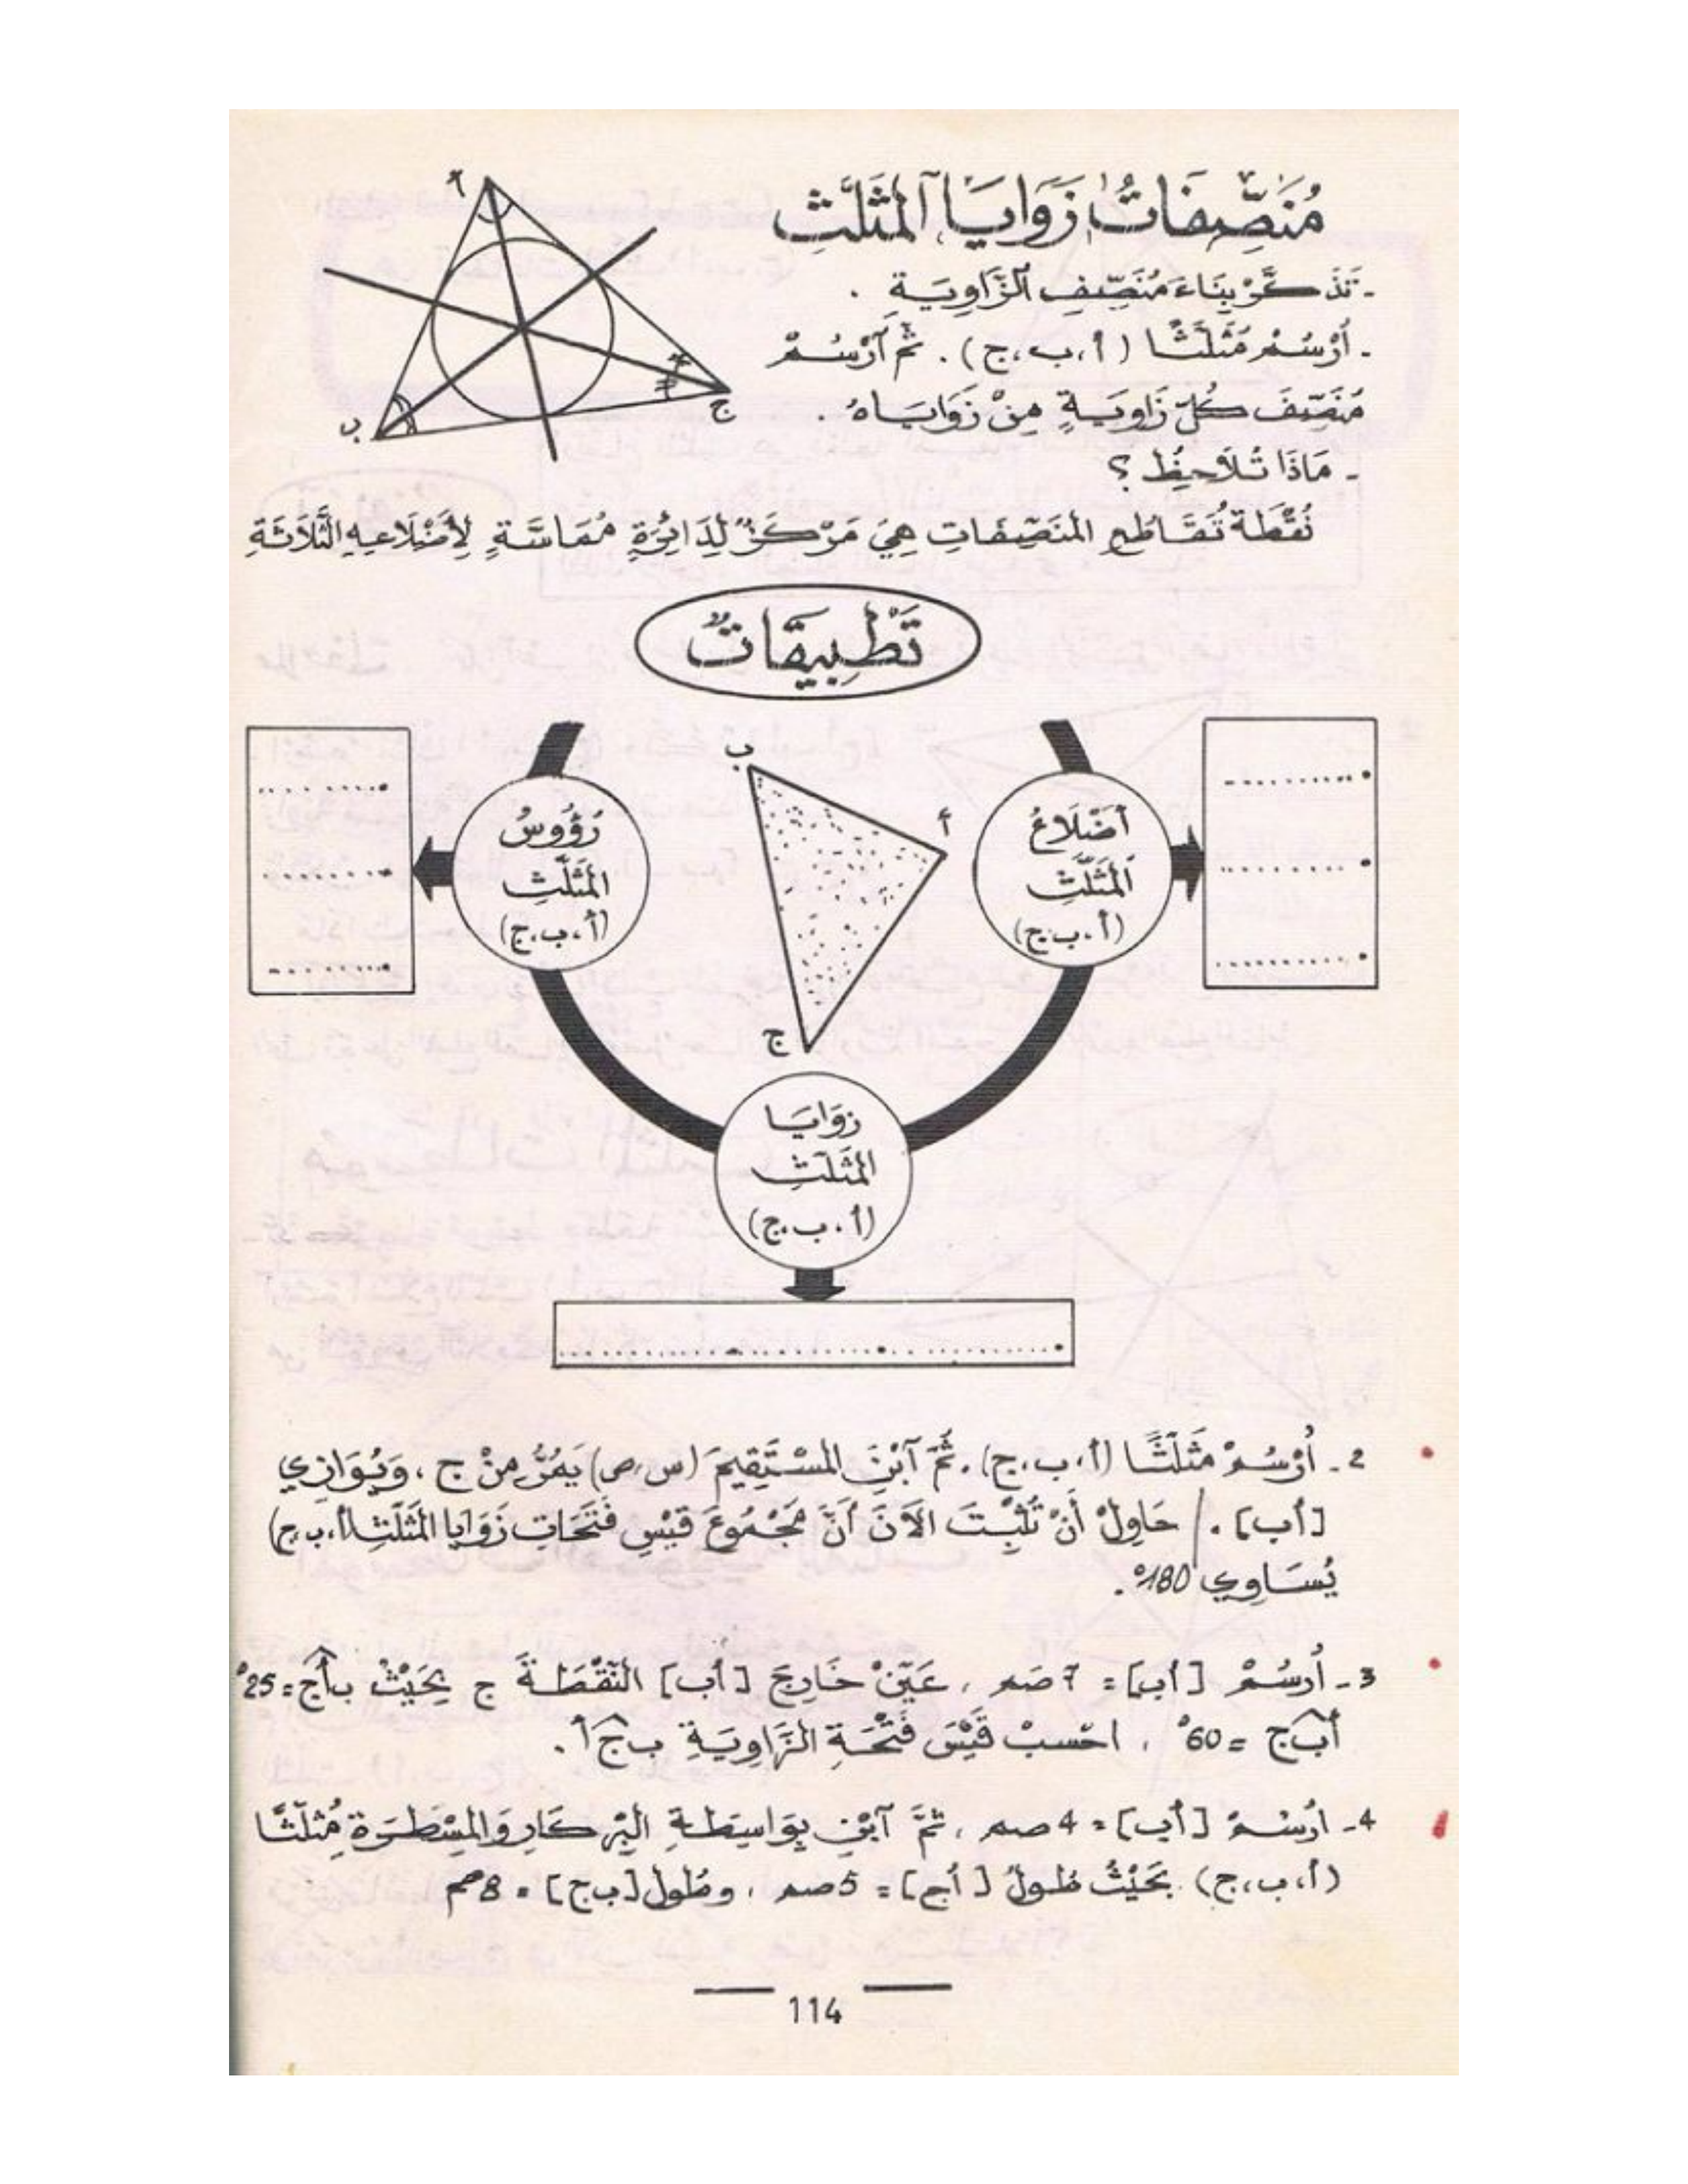 مُنَصِّفَاتُ زَوَايَا آلمُثَلَّثِ
- تَذَكَّرْ بِنَاءَ مُنَصِّفِ آلزَّاوِيَةِ .
- أُرْسُمْ مُثَلَّثًا (أ،ب،ج) . ثُمَّ آرْسُمْ
مُنَصِّفَ كُلِّ زَاوِيَةٍ مِنْ زَوَايَاهُ .
- مَاذَا تُلَاحِظُ ؟
نُقْطَةُ تَقَاطُعِ المُنَصِّفَاتِ هِيَ مَرْكَزٌ لِدَائِرَةٍ مُمَاسَّةٍ لِأَضْلَاعِهِ الثَّلَاثَةِ
أ
ب
ج
تَطْبِيقَاتٌ
أَضْلَاعُ
آلمُثَلَّثِ
(أ،ب،ج)
رُؤُوسُ
المُثَلَّثِ
(أ،ب،ج)
ب
أ
ج
زَوَايَا
المُثَلَّثِ
(أ،ب،ج)
2 - أُرْسُمْ مُثَلَّثًا (أ،ب،ج) . ثُمَّ آبْنِ المُسْتَقِيمَ (س،ص) يَمُرُّ مِنْ ج ، وَيُوَازِي
[أب] . / حَاوِلْ أَنْ تُثْبِتَ الآنَ أَنَّ مَجْمُوعَ قَيْسِ فَتَحَاتِ زَوَايَا المُثَلَّثِ (أ،ب،ج)
يُسَاوِي 180° .
3 - أُرسُمْ [أب] = 7 صم ، عَيِّنْ خَارِجَ [أب] النُّقْطَةَ ج بِحَيْثُ بأج = 25°
أبج = 60° ، احْسبْ قَيْسَ فَتْحَةِ الزَّاوِيَةِ بجأ .
4 - ارْسُمْ [أب] = 4 صم ، ثُمَّ آبْنِ بِوَاسِطَةِ البِرْكَارِ وَالمِسْطَرَةِ مُثَلَّثًا
(أ،ب،ج) بِحَيْثُ طُولُ [أج] = 5 صم ، وطُول [بج] = 8 صم
114